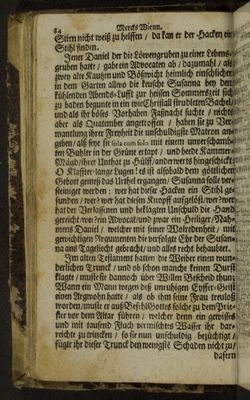 84 Mercks Wienn.
Sitten nicht weiß zu helffen / da kan er der Hacken ein
Stihl finden.
Jener Daniel der die Löwengruben zu einer Lebens-
gruben hatte / gabe ein Advocaten ab / dazumahl / als
zwey alte Kautzen und Bößwicht heimlich einschlichen
in dem Garten allwo die keusche Susanna bey der
kühlenden Abends-Lufft zur heissen Sommerszeit sich
zu baden begunte in ein wie Christall strudleten Bachel /
und als ihr böses Vorhaben Faßnacht suchte / nichts
aber als Quatember angetroffen / haben sie zu Ver-
mantlung ihrer Freyheit die unschuldigiste Matron an-
geben / als seye sie sola cum solo mit einem unverschamb-
ten Buhler in der Grüne ertapt / und beede Kammer-
Mägd / ihrer Unthat zu Hülff / anderwerts hingeschickt.
O Klaffter-lange Lugen! es ist alsobald dem göttlichen
Gebott gemeß das Urthel ergangen / Susanna solle ver-
steiniget werden: wer hat diese Hacken ein Stihl ge-
funden / wer? wer hat diesen Knopff auffgelöst / wer? wer
hat der Verlassnen und beklagten Unschuld die Hand
gereicht / wer? ein Advocat und zwar ein Heiliger / Nah-
mens Daniel / welcher mit seiner Wolredenheit / mit
gewichtigen Argumenten die vorfolgte Ehr der Susan-
na ans Tageliecht gebracht / und alles recht behaubtet.
Im alten Testament hatten die Weiber einen wun-
derlichen Trunck / und ob schon manche keinen Durst
klagte / muste sie dannoch über Willen Bescheid thun:
Wann ein Mann wegen deß unruhigen Eyffer-Geist
einen Argwohn hatte / als ob ihm seine Frau treuloß
worden / muste er auß Befehl Gottes solche zu dem Prie-
ster vor dem Altar führen / welcher denn ein gewisses
und mit tausend Fluch vermischtes Wasser ihr dar-
reichte zu trincken / so sie nun unschuldig bezüchtiget /
fügte ihr dieser Trunck den wenigste Schaden nicht zu /
dafern